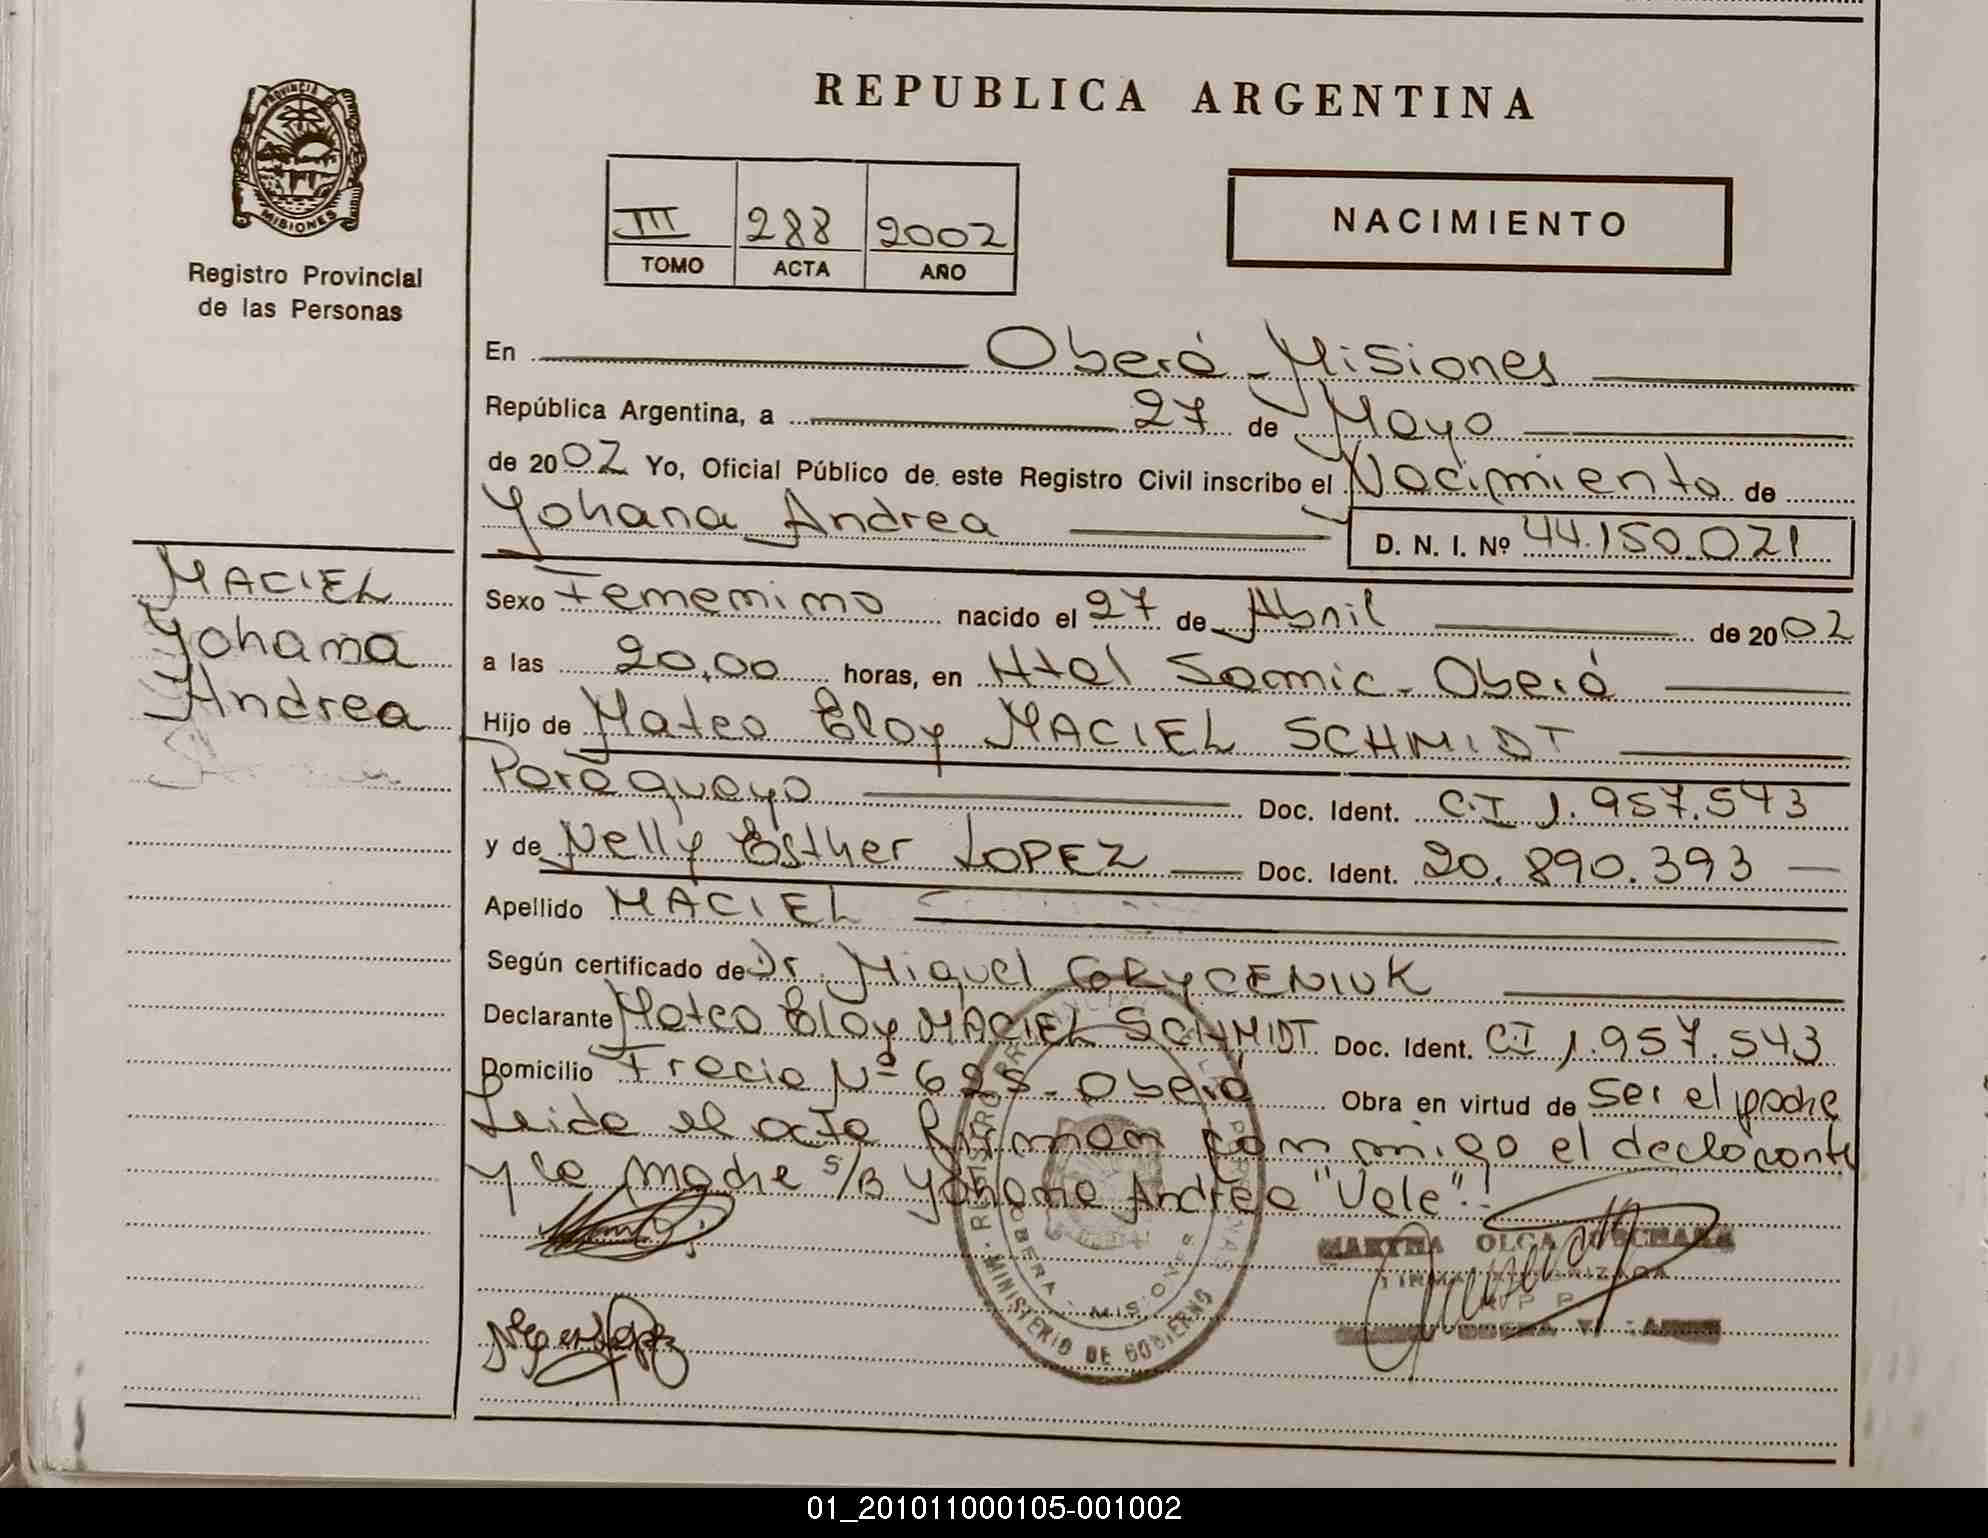 REPUBLICA ARGENTINA
PROVINCIA DE
MISIONES
Registro Provincial
de las Personas
III 288 2002
TOMO ACTA AÑO
NACIMIENTO
En Oberá - Misiones
República Argentina, a 27 de Mayo
de 2002 Yo, Oficial Público de este Registro Civil inscribo el Nacimiento de
Yohana Andrea
D. N. I. Nº 44.150.021
MACIEL
Yohana
Andrea
Sexo Femenino nacido el 27 de Abril de 2002
a las 20,00 horas, en Htal Samic - Oberá
Hijo de Mateo Eloy MACIEL SCHMIDT
Paraguayo Doc. Ident. C.I 1.957.543
y de Nelly Esther LOPEZ Doc. Ident. 20.890.393
Apellido MACIEL
Según certificado de Dr. Miguel GRYCENIUK
Declarante Mateo Eloy MACIEL SCHMIDT Doc. Ident. CI 1.957.543
Domicilio Nº 625 - Oberá Obra en virtud de Ser el padre
Leida el acta Firman conmigo el declarante
y la madre s/B Yohana Andrea "Vale".!
MARTHA OLGA
OBERA - MISIONES
MINISTERIO DE GOBIERNO
01_201011000105-001002